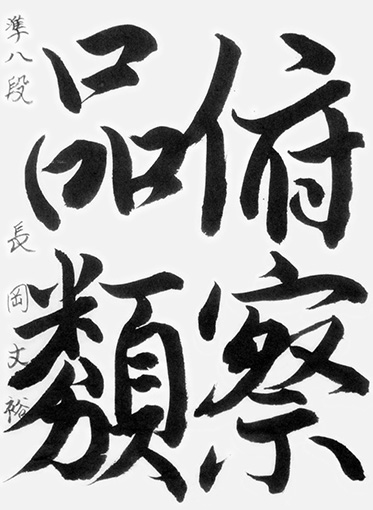 俯察
品類
準八段 長岡丈裕